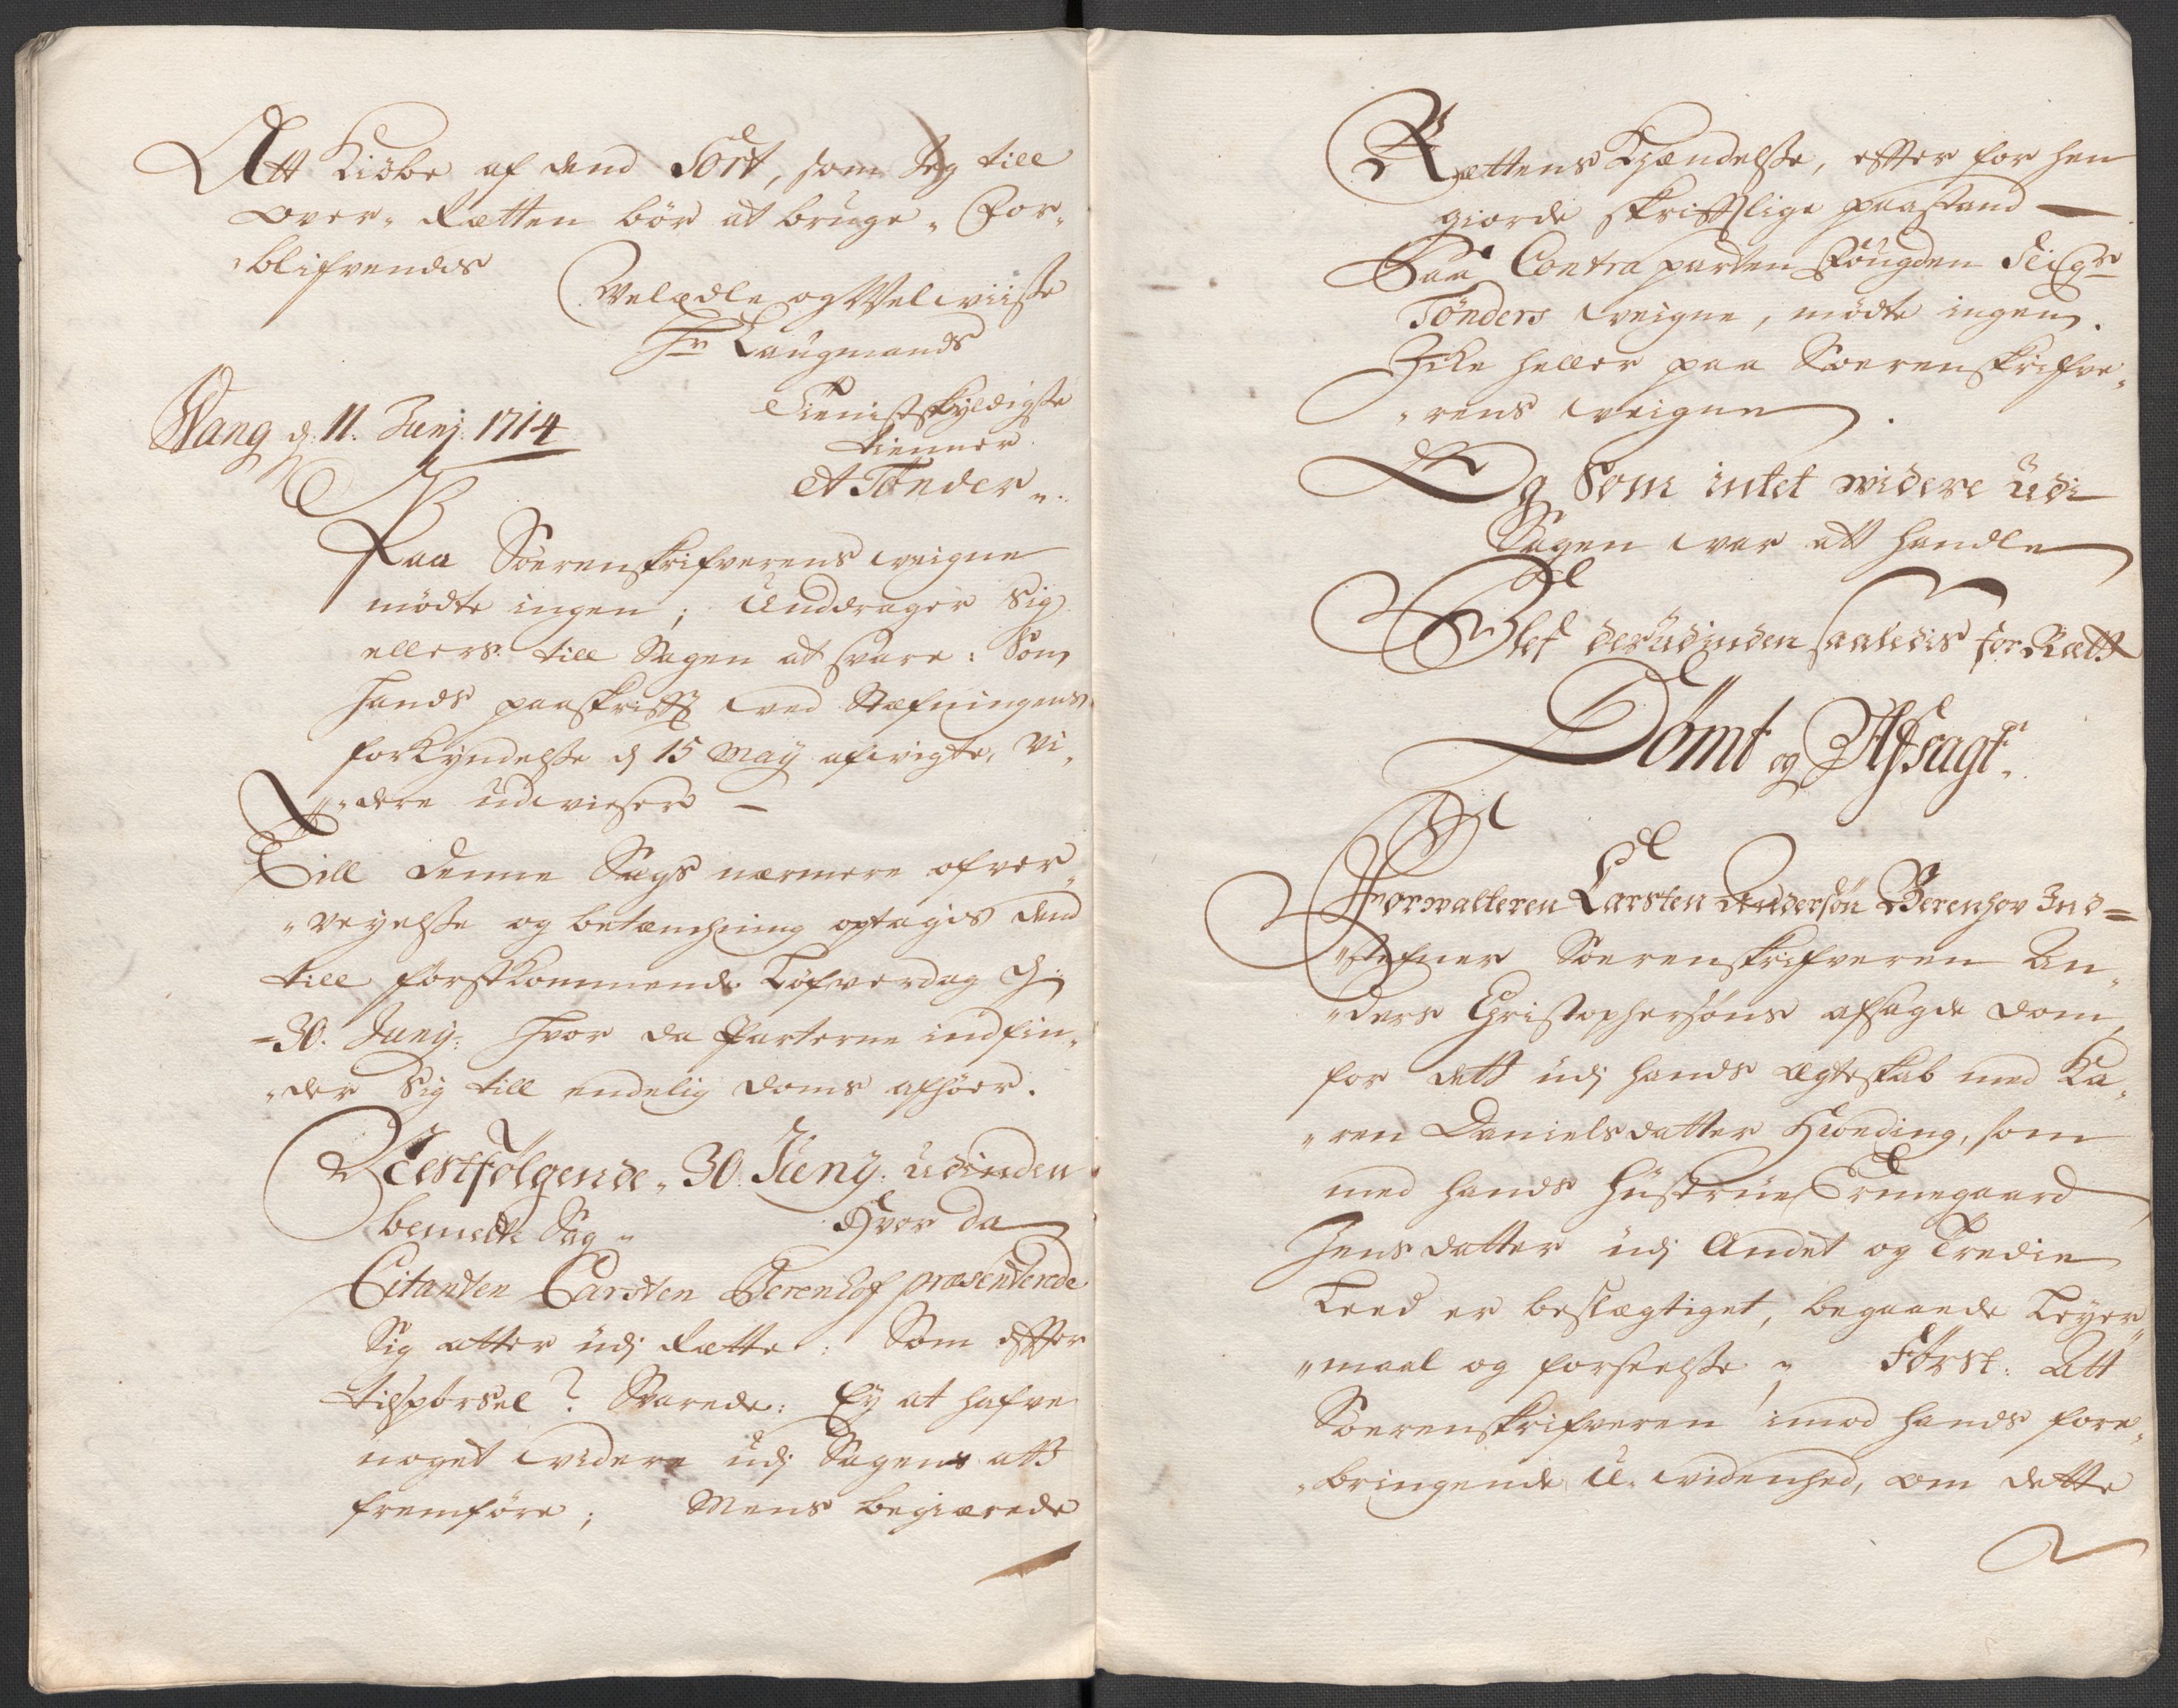 Att Kiöbe af dend Sort, som Jeg till
Over- Rætten bör at bruge. For-
blifvendes
Velædle og Velwiiste
Hr Laugmands
Tienistskyldigste
tienner
A Tønder
Wang d. 11. Junj. 1714
Paa Sorenskrifverens weigne
mödte ingen; Unddrager Sig
ellers till Sagen at svare: Som
hands paaskrifft wed Stefningens
forkyndelse d 15 May afwigte, vi-
dere udwieser
Till denne Sags nærmere ofver-
veyelse og betænchning optages dend
till förstkommende Löfverdag d
30. Junij: hvor da Parterne indfin-
der Sig till endelig doms afhöer.
Nestfölgende 30. Juny. udinden
bemelte Sag
Hvor da
Citanten Carsten Berenhof præsenterede
Sig atter udj Rætte: Som effter
tilspörsel? Svarede: Ey at hafve
noget widere udj Sagen att
fremföre; Mens begiærede
Rættens Kjændelse, effter for hen
giorde skrifftlige paastand
Paa Contra parten Fougden Seigr
Tönders weigne, mödte ingen.
Icke heller paa Sorenskrifve-
rens weigne
Og som intet widere udi
Sagen war att handle
Blef derudinden saaledis for Rætt
Dömt og Afsagt.
Forwalteren Carsten Andersön Berenhov Ind=
stefner Sorenskrifveren An-
ders Christophersöns afsagde dom,
for dett udj hands Ægteskab med Ka-
ren Danielsdatter Hveding, som
med hands Hustrue Ermegaard
Jensdatter udj Andet og Tredie
Leed er beslægtiget, begaaede Leyer-
maal og forseelse. Först: Att
Sorenskrifveren imod hands fore-
bringende U-widenhed, om dette